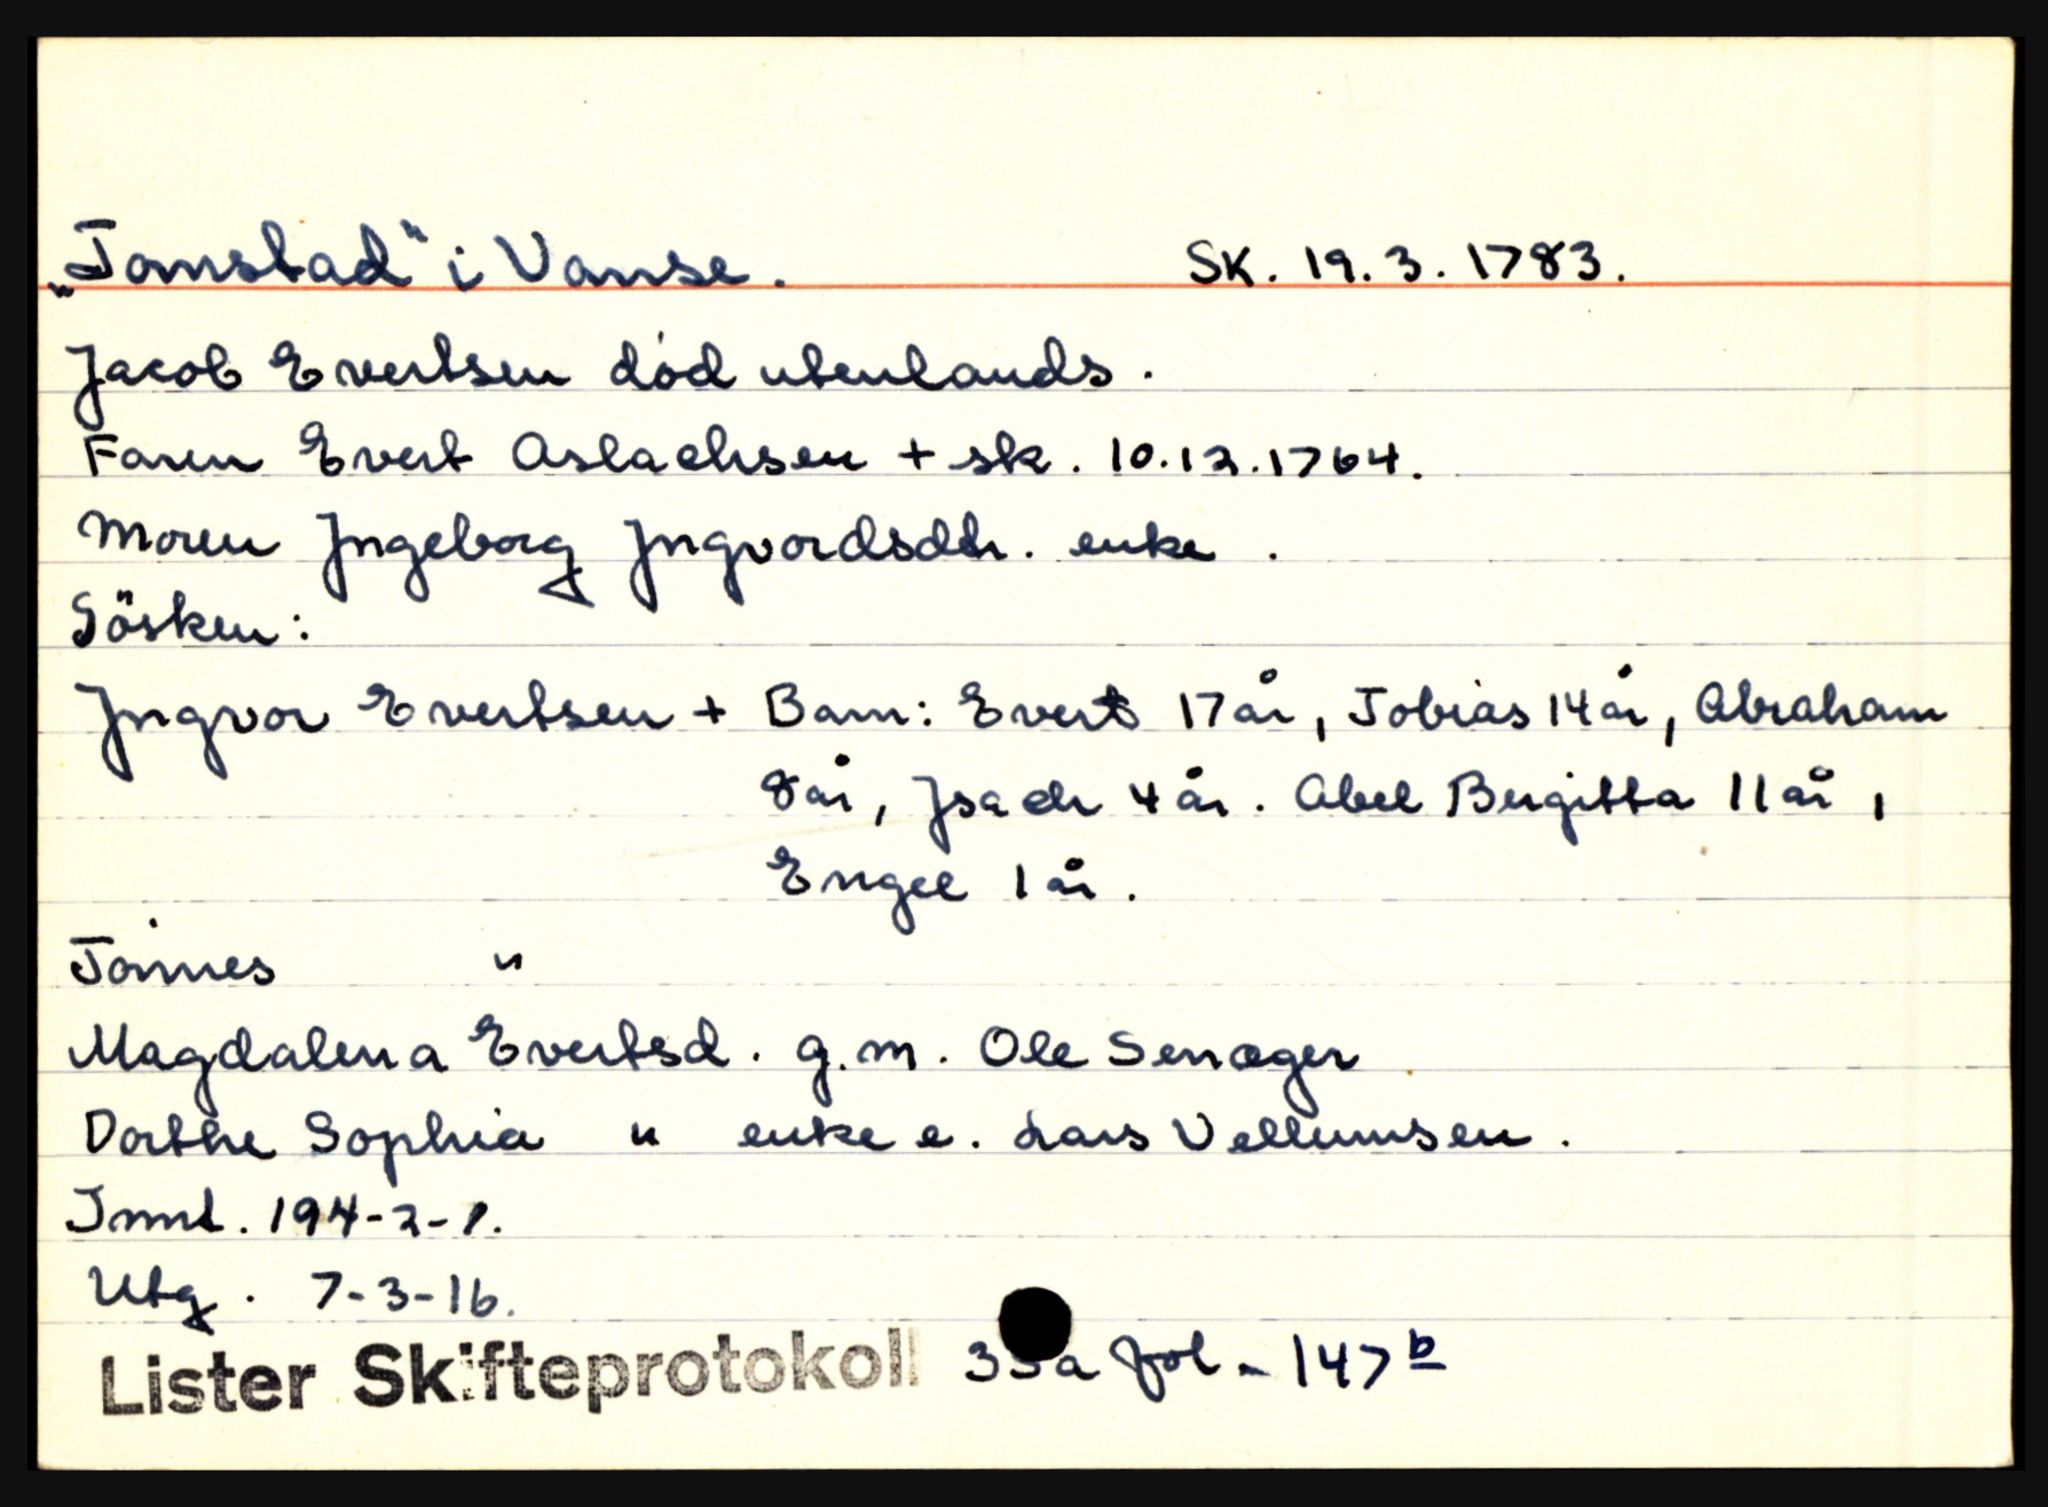 „Tomstad“ i Vanse. SK. 19.3.1783.
Jacob Evertsen död utenlands.
Faren Evert Aslachsen + sk. 10.12.1764.
Moren Jngeborg Jngvordsdtr. enke.
Sösken:
Jngvor Evertsen + Barn: Evert 17 år, Tobias 14 år, Abraham
8 år, Jsach 4 år. Abel Birgitta 11 år,
Engel 1 år.
Tönnes "
Magdalena Evertsd. g.m. Ole Senæger
Dorthe Sophia " enke e. Lars Vellumsen.
Innt. 194-2-1.
Utg. 7-3-16.
Lister Skifteprotokoll fol - 147 b